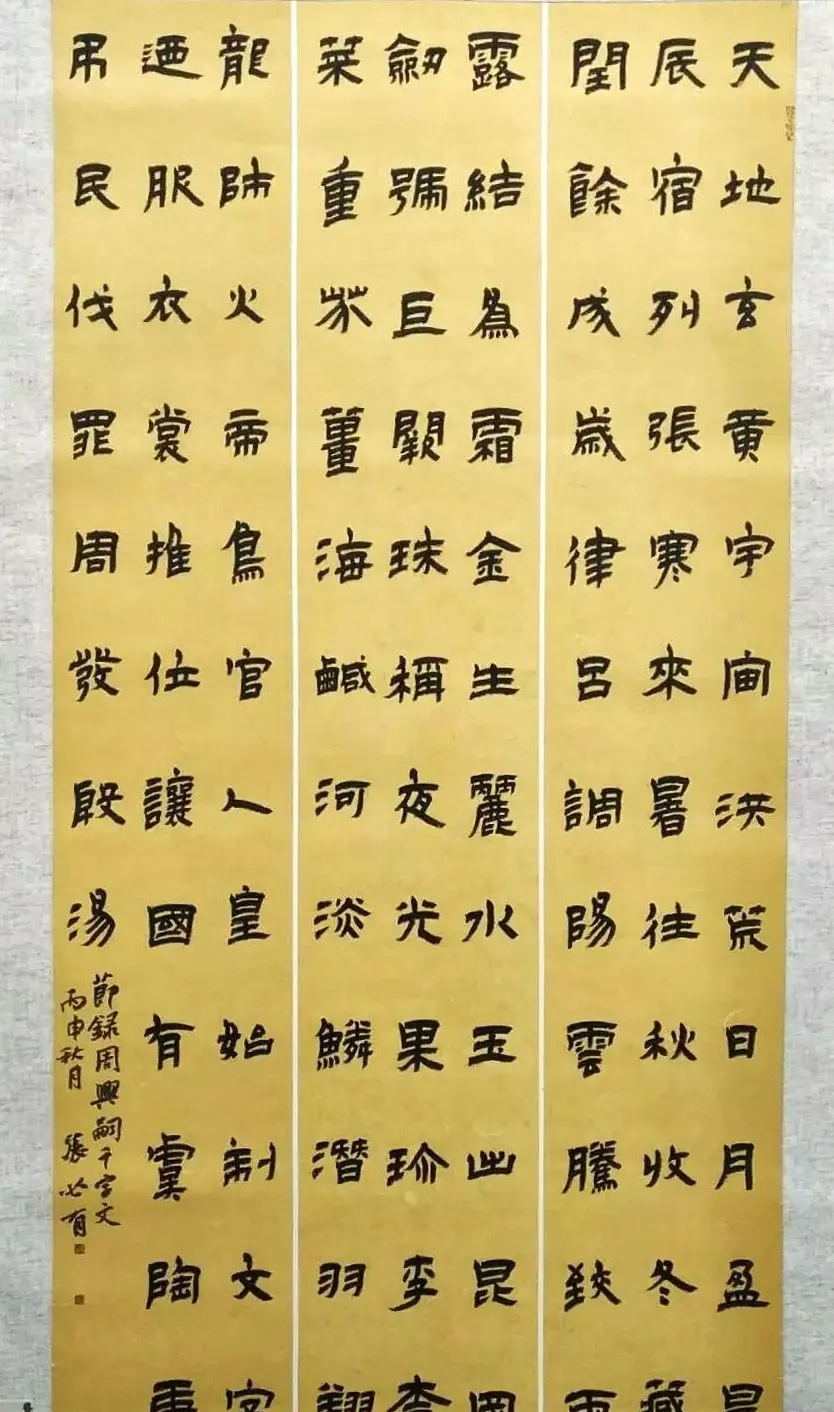 天地玄黄宇宙洪荒日月盈昃
辰宿列張寒來暑往秋收冬藏
閏餘成歲律呂調陽雲騰致雨
露結爲霜金生麗水玉出昆岡
劒號巨闕珠稱夜光果珍李柰
菜重芥薑海鹹河淡鱗潛羽翔
龍師火帝鳥官人皇始制文字
迺服衣裳推位讓國有虞陶唐
弔民伐罪周發殷湯
節録周興嗣千字文
丙申秋月 張必有